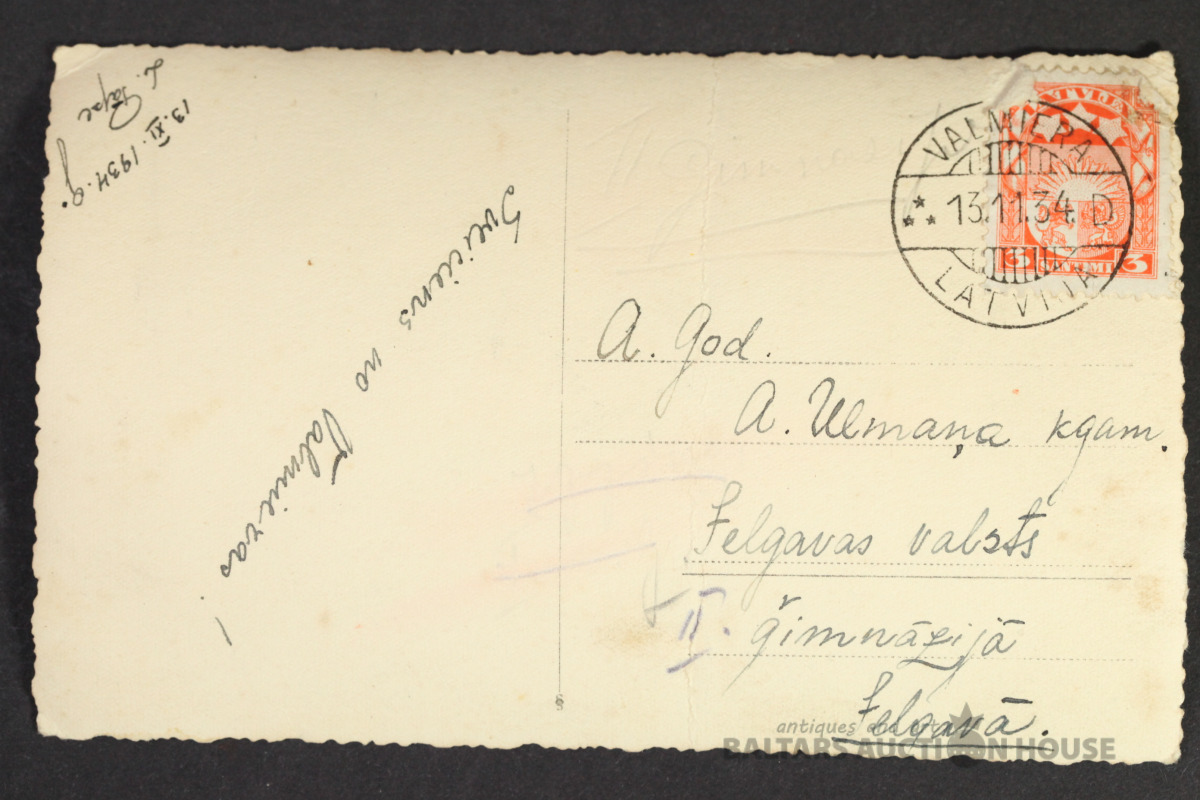 13.XI.1934.g.
Sveiciens no Valmieras!
LATVIJA
3 SANTIMI 3
VALMIERA
13.11.34. D
LATVIJA
A. God.
A. Ulmaņa kgam.
Jelgavas valsts
II. ģimnāzijā
Jelgavā.
antiques and art
BALTARS AUCTION HOUSE